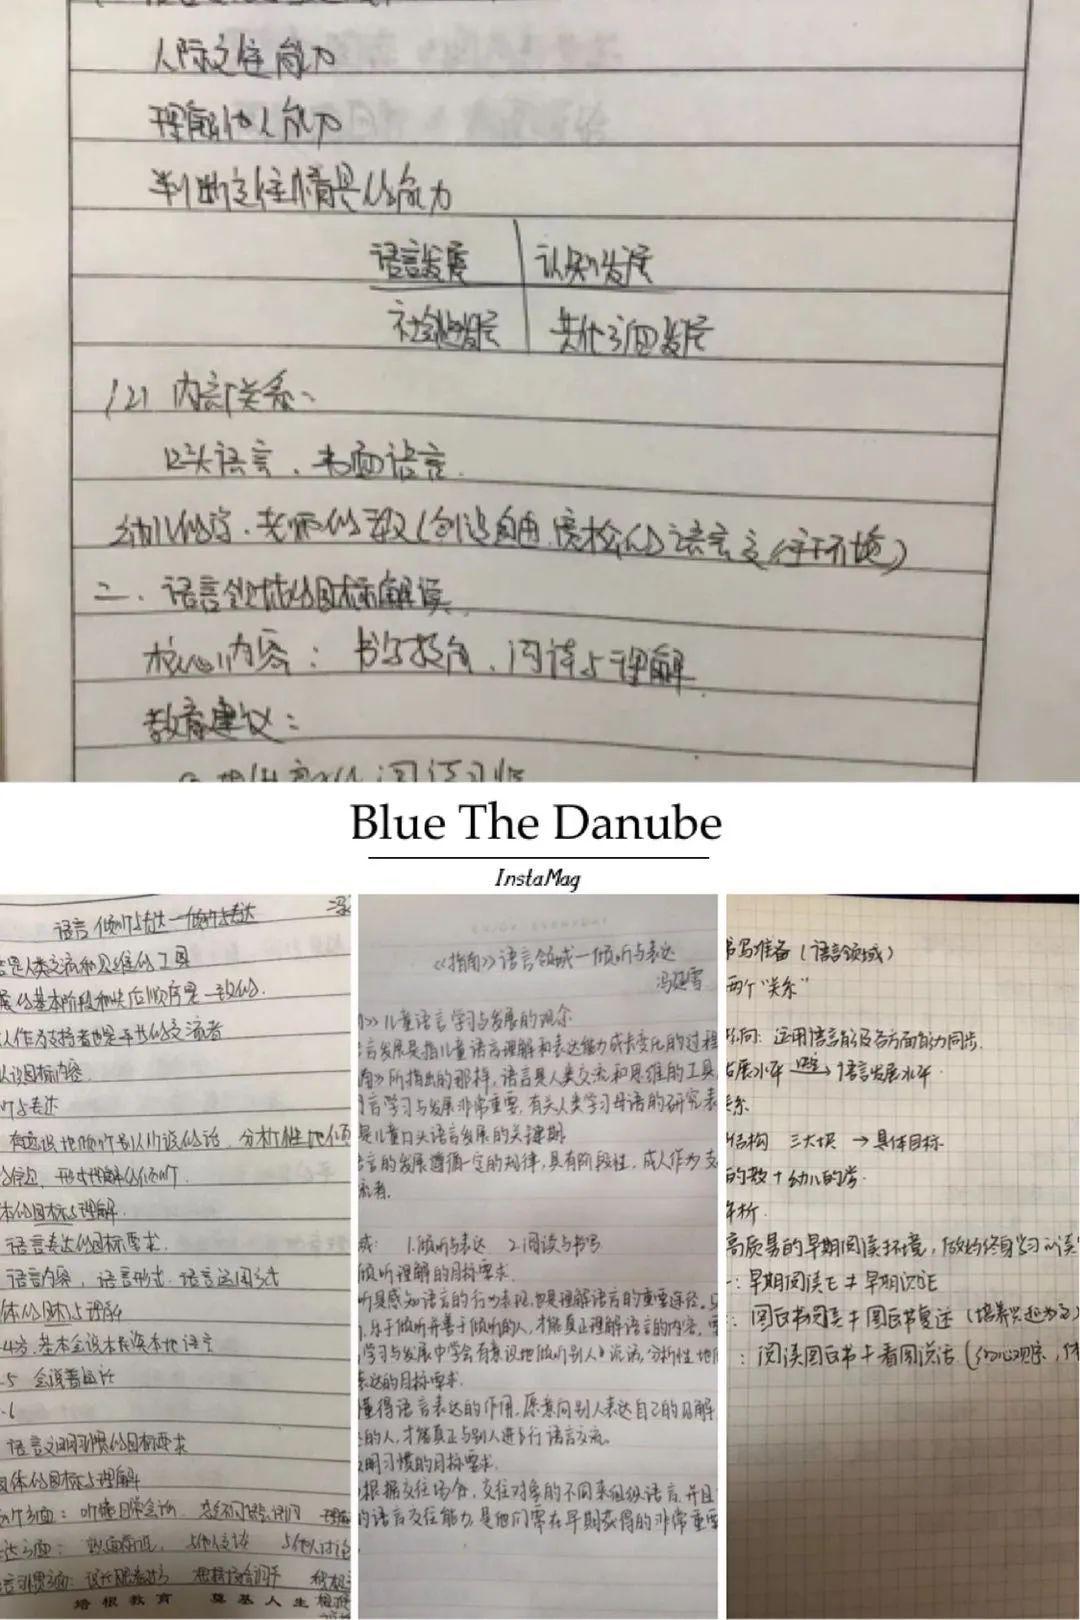 人际交往能力
理解他人能力
判断交往情景的能力
语言发展 认知发展
社会性发展 其他方面发展
(2) 内部关系：
口头语言、书面语言.
幼儿的学、老师的教(创设自由、宽松的语言交往环境)
二、语言领域的目标解读
核心内容：书写技有、阅读与理解
教育建议：
Blue The Danube
InstaMag
语言 倾听与表达—倾听与表达
是人类交流和思维的工具
的基本阶段和先后顺序是一致的.
人作为支持者也是平等的交流者
认识目标内容
听与表达
有意识地倾听别人所说的话，分析性地倾
形成理解的倾听.
体的目标与理解.
语言表达的目标要求.
语言内容，语言形式.语言运用方式
体的目标与理解
4岁.基本会说本民族本地语言
5 会说普通话
6
语言文明习惯的目标要求
具体的目标与理解
个方面：听懂日常会话.
方面： 与他人交谈 与他人讨论
培根教育 奠基人生
《指南》语言领域—倾听与表达
冯延雪
》儿童语言学习与发展的观念
言发展是指儿童语言理解和表达能力成长变化的过程
南》所指出的那样，语言是人类交流和思维的工具
言学习与发展非常重要，有关人类学习母语的研究表
是儿童口头语言发展的关键期
言的发展遵循一定的规律，具有阶段性，成人作为支
流者.
域： 1.倾听与表达 2.阅读与书写
倾听理解的目标要求.
听是感知语言的行为表现，也是理解语言的重要途径。只
，乐于倾听并善于倾听的人，才能真正理解语言的内容，要
学习与发展中学会有意识地倾听别人说话，分析性地
表达的目标要求.
懂得语言表达的作用，愿意向别人表达自己的见解
的人，才能真正与别人进行语言交流。
文明习惯的目标要求.
根据交往场合，交往对象的不同来组织语言，并且
的语言交往能力，是他们需在早期获得的非常重要
书写准备（语言领域）
两个"关系"
运用语言能及各方面能力同步.
发展水平 → 语言发展水平
关系
结构 三大块 → 具体目标
的教+幼儿的学.
解析.
高质量的早期阅读环境，做好终身学习的读
：早期阅读 ≠ 早期识字
：图画书阅读 ≠ 图画书复述（培养兴趣为主）
：阅读图画书 ≠ 看图说话（细心观察，